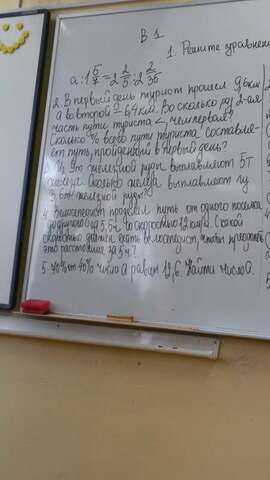 В 1
1. Решите уравнение
а : 1 5/7 = 2 2/5 : 2 2/35
2. В первый день турист прошел
а во второй – 6,4 км. Во сколько раз 2-ая
часть пути туриста <, чем первая?
Сколько % всего пути туриста составля-
ет путь, пройденный в первый день?
железной руды выплавляют 5т
железа. Сколько железа выплавляют из
железной руды?
4. Велосипедист проделал путь от одного поселка
до другого за 5,5 ч со скоростью 12 км/ч. С какой
скоростью должен ехать велосипедист, чтобы преодолеть
это расстояние за 5 ч?
5. 70% от 40% числа а равны 12,6. Найти число а.